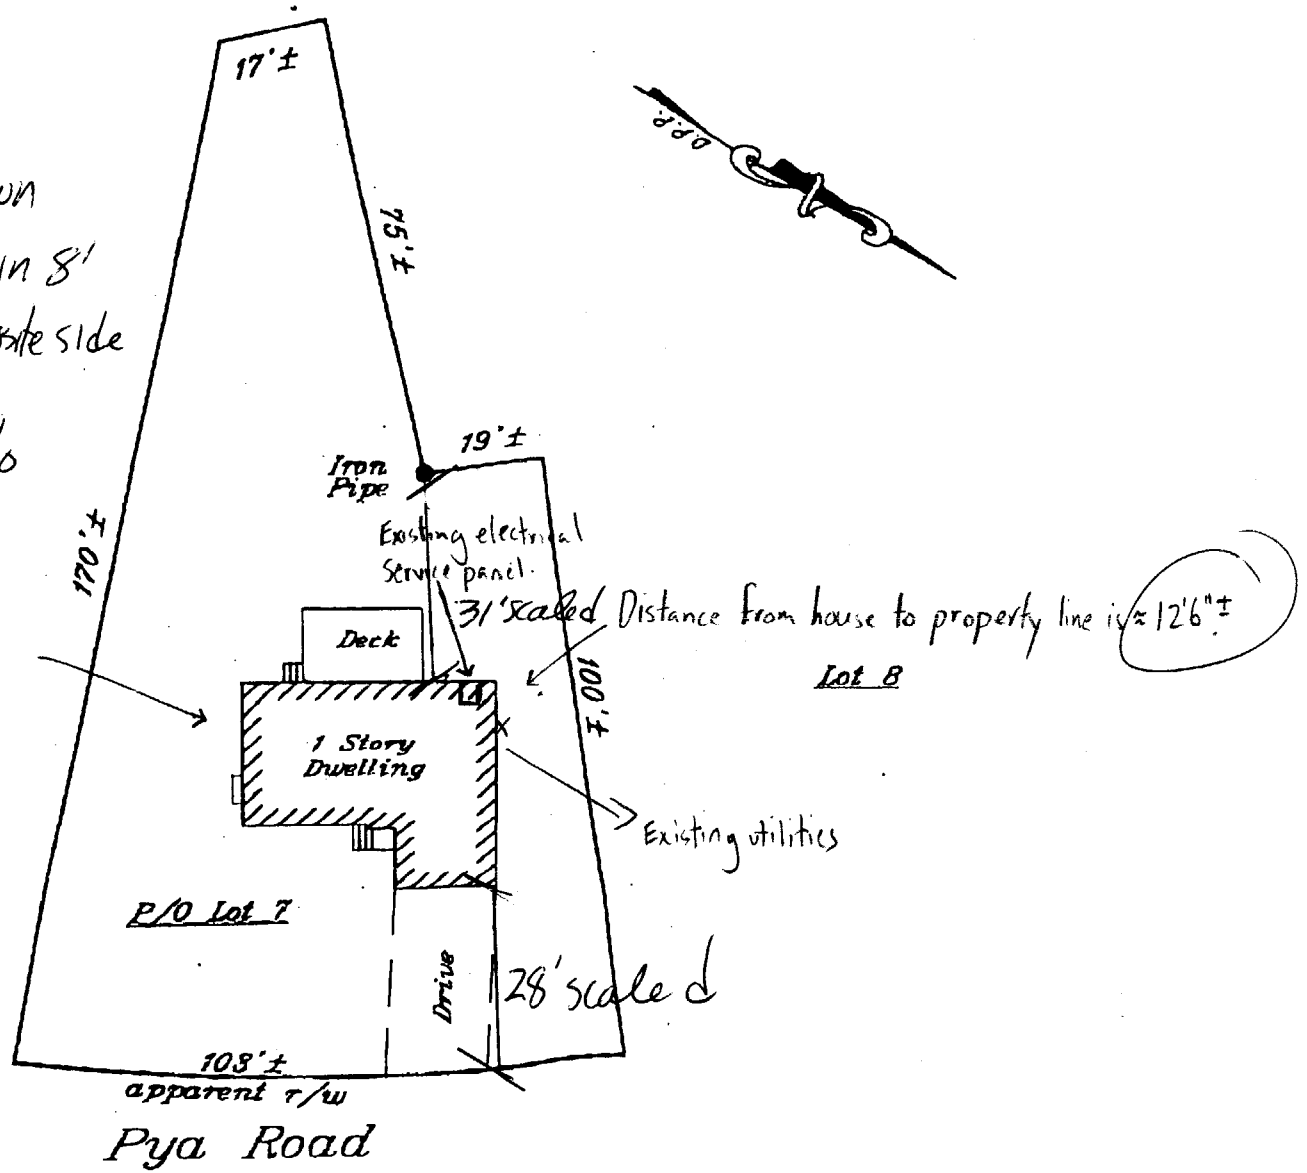 17'±
D.P.P.
75'±
in 8'
side
19'±
Iron
Pipe
170'±
Existing electrical
Service panel.
31' scaled
Distance from house to property line is ≈ 12'6"±
Deck
Lot 8
100'±
1 Story
Dwelling
Existing utilities
P/O Lot 7
Drive
28' scaled
103'±
apparent r/w
Pya Road